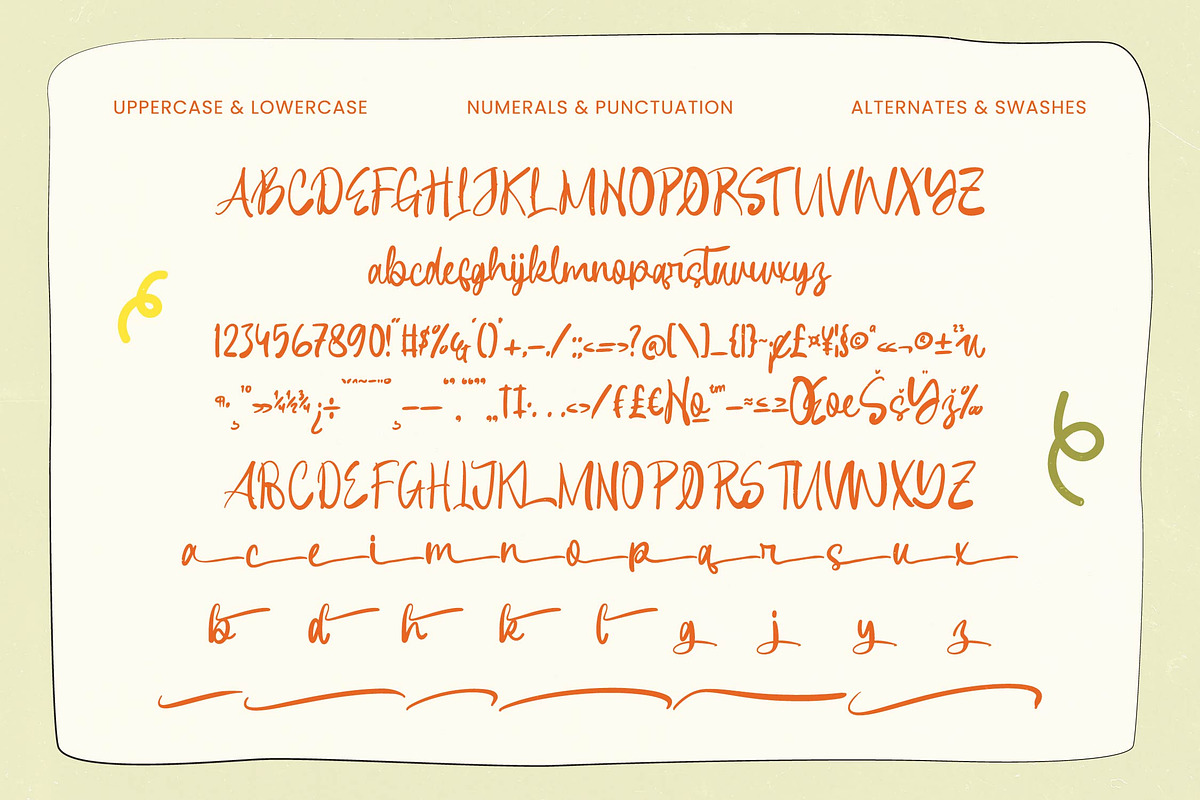 UPPERCASE & LOWERCASE NUMERALS & PUNCTUATION ALTERNATES & SWASHES
ABCDEFGHIJKLMNOPQRSTUVWXYZ
abcdefghijklmnopqrstuvwxyz
1234567890!"#$%&'()*+,-./:;<=>?@[\]_{|}~¡¢£¤¥¦§©ª«¬®±²³µ
¶¸¹º»¼½¾¿÷–—‚“”„†‡•…‹›⁄ƒ₤€№™−≈≤≥ŒœŠšŸž‰
ABCDEFGHIJKLMNOPQRSTUVWXYZ
a c e i m n o p q r s u x
b d h k l g j y z